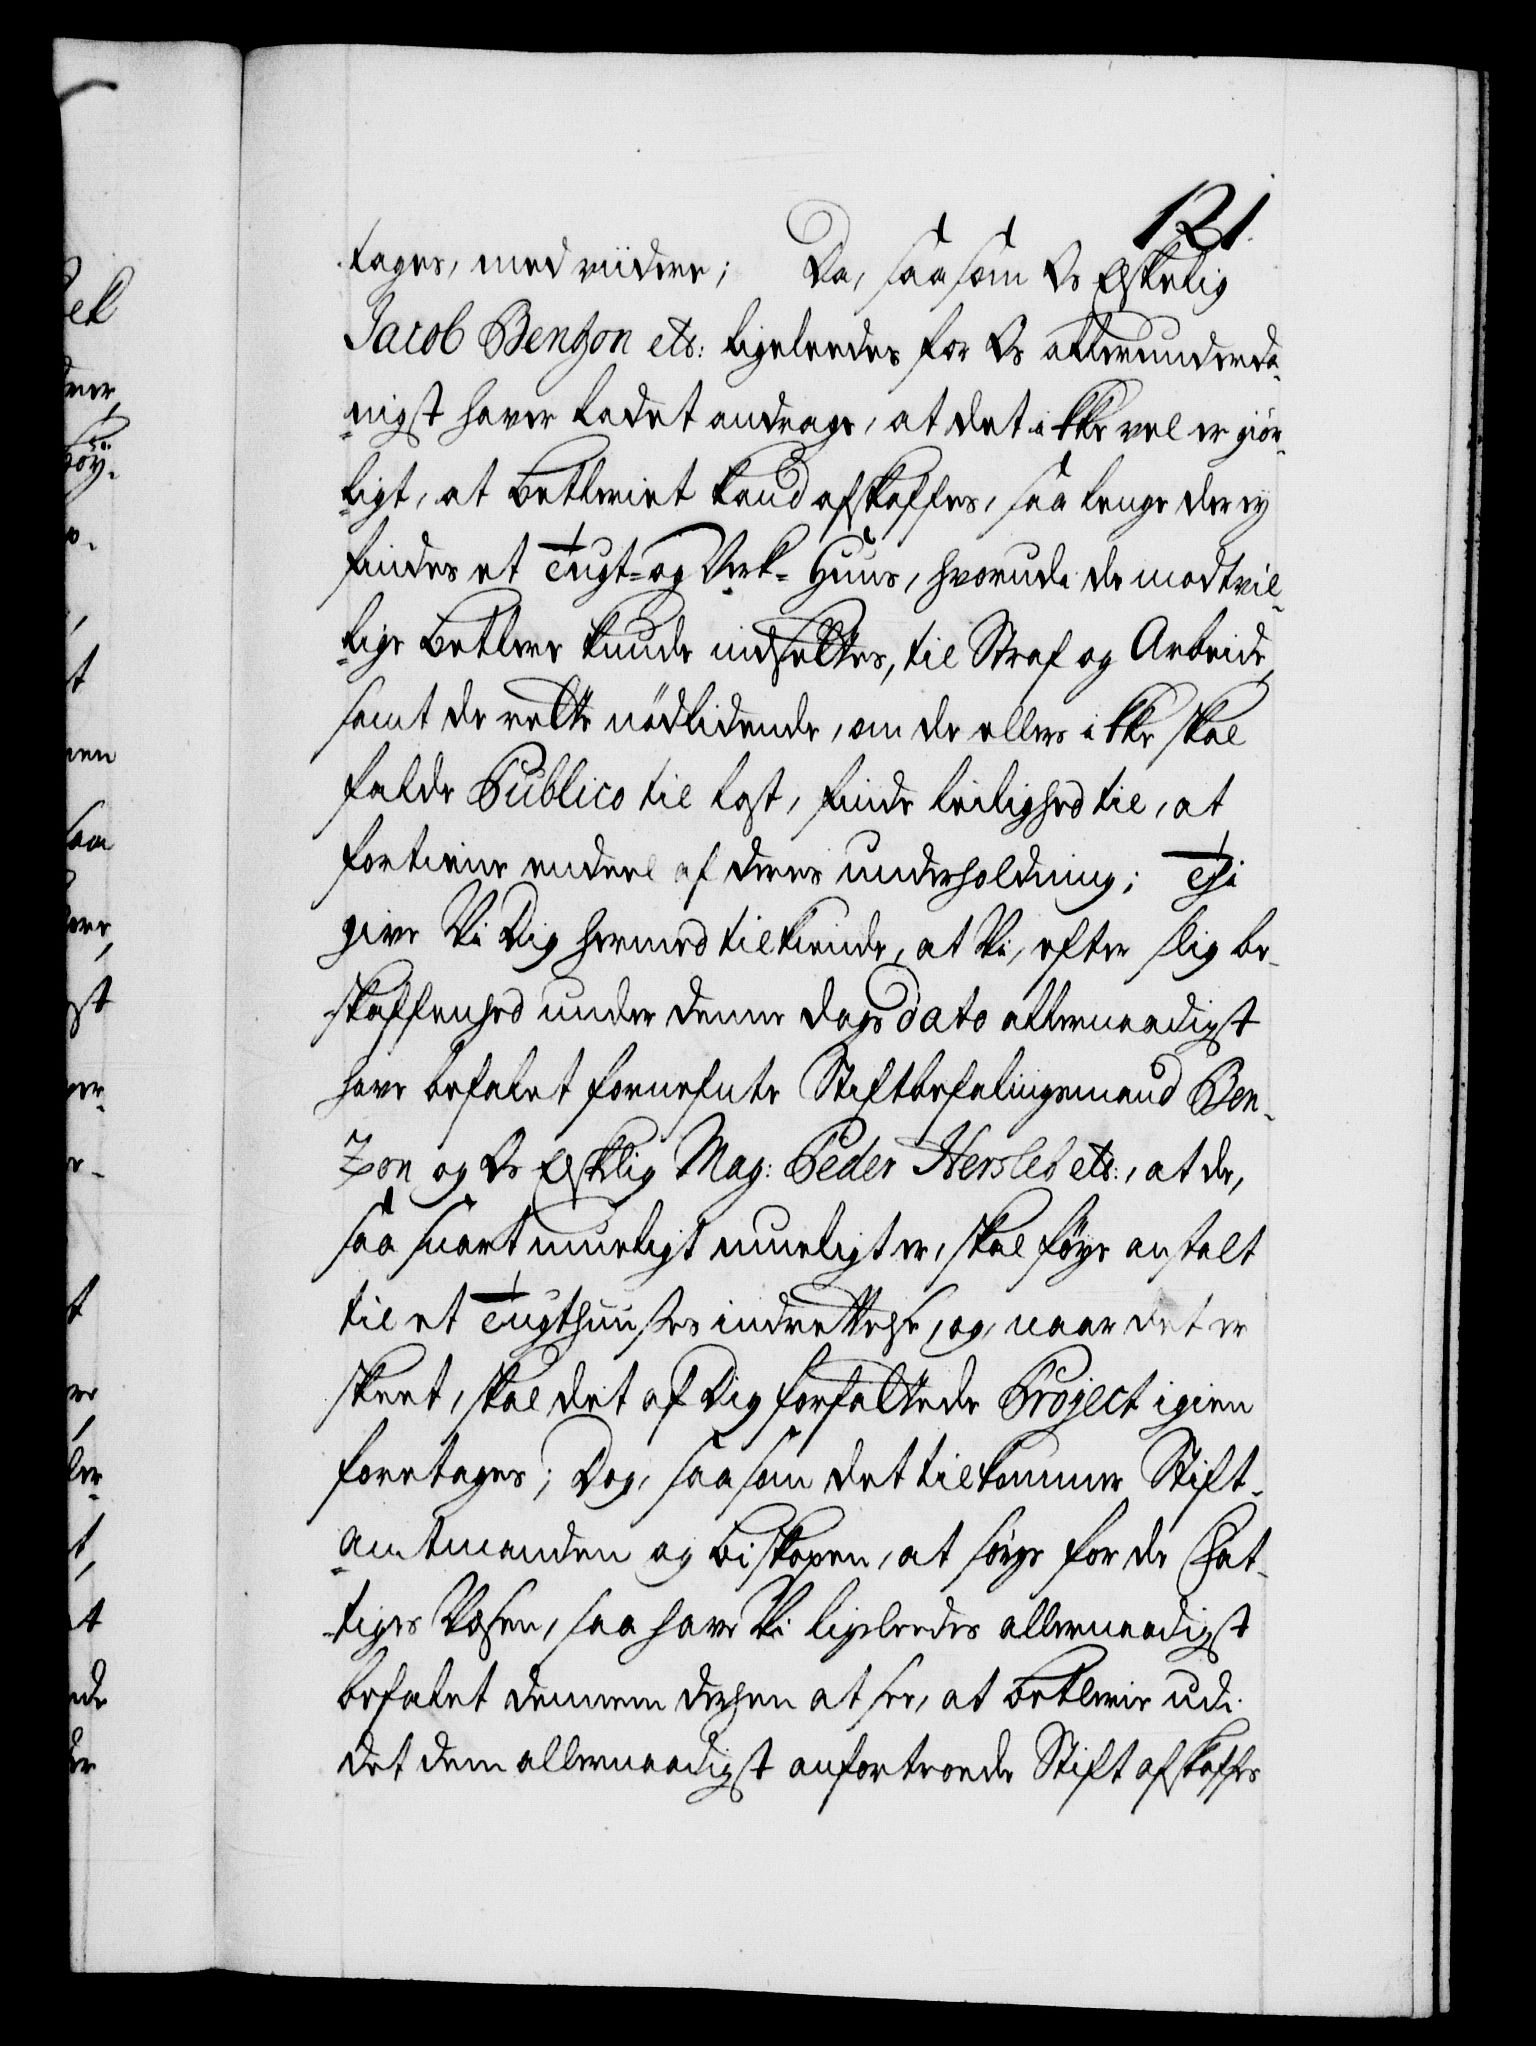 121.
tages, med viidere; Da, saasom Os Elskelig
Jacob Benzon etc: ligeleedes for Os allerunderda-
nigst haver ladet andrage, at det ikke vel er giør-
ligt, at Betleriet kand afskaffes, saa lenge der ey
findes et Tugt- og Verk-Huus, hvorudi de modtvil-
lige Betlere kunde indsettes, til Straf og Arbeide,
samt de rette nødlidende, om de ellers ikke skal
falde Publico til Last, finde leilighed til, at
fortiene en deel af deres underholdning; Thi
give Vi Dig hermed tilkiende, at Vi, efter slig be-
skaffenhed under denne Dags dato allernaadigst
have befalet fornefnte Stiftbefalingsmand Ben-
zon og Os Elskelig Mag: Peder Hersleb etc:, at de,
saa snart mueligt mueligt er, skal føye anstalt
til et Tugthuuses indrettelse, og, naar det er
skeet, skal det af Dig forfattede Project igien
foretages; Dog, saasom det tilkommer Stift-
amtmanden og Biskopen, at sørge for de Fat-
tiges Væsen, saa have Vi ligeleedes allernaadigst
befalet dennem derhen at see, at Betlerie udi
det dem allernaadigst anfortroede Stift afskaffes